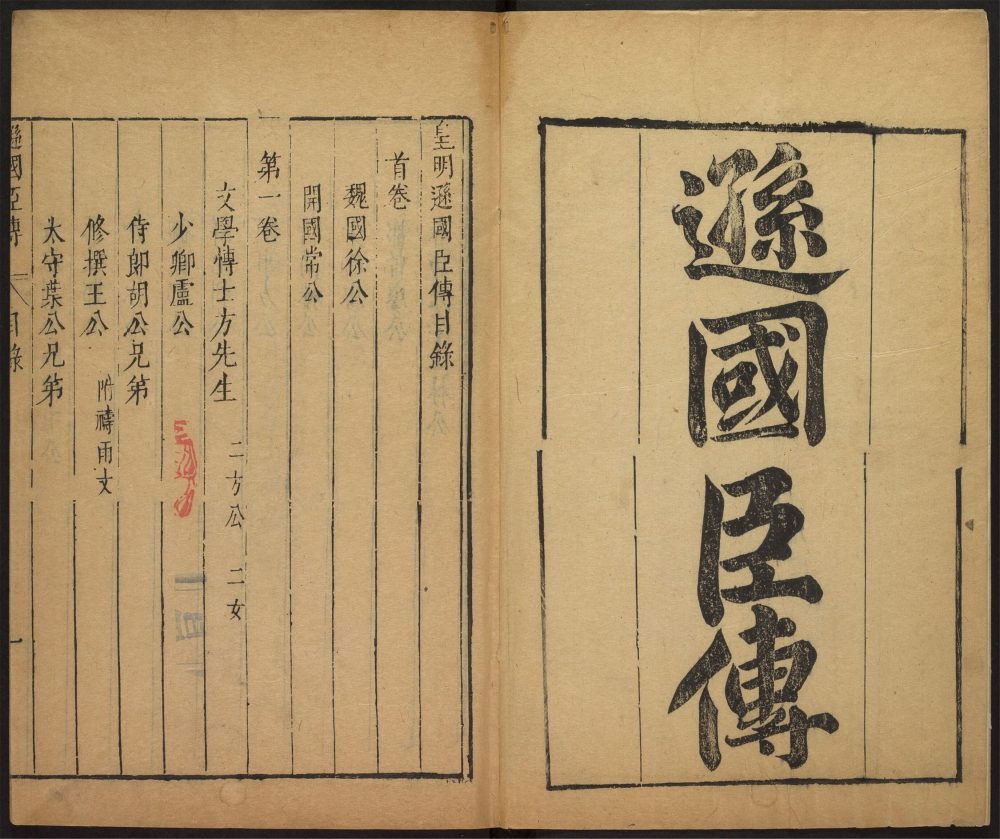 遜國臣傳
皇明遜國臣傳目錄
首卷
魏國徐公
開國常公
第一卷
文學博士方先生 二方公 二女
少卿盧公
侍郎胡公兄弟
修撰王公 附禱雨文
太守葉公兄弟
遜國臣傳 目錄 一